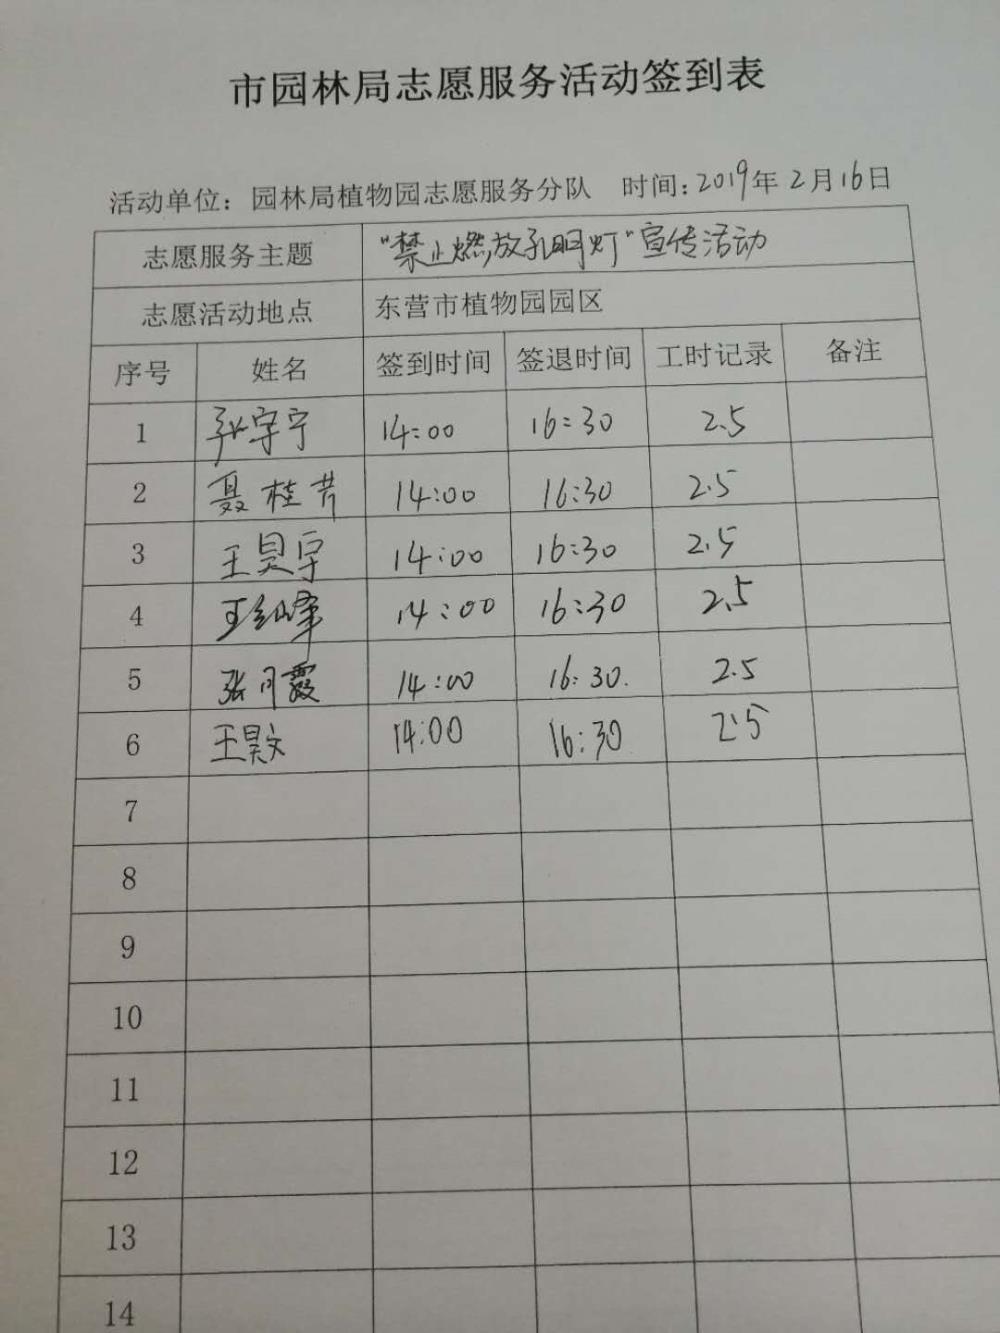 市园林局志愿服务活动签到表
活动单位：园林局植物园志愿服务分队 时间：2019年2月16日
志愿服务主题 "禁止燃放孔明灯"宣传活动
志愿活动地点 东营市植物园园区
序号 姓名 签到时间 签退时间 工时记录 备注
1 张宇宁 14:00 16:30 2.5
2 聂桂芹 14:00 16:30 2.5
3 王昊宇 14:00 16:30 2.5
4 14:00 16:30 2.5
5 张月霞 14:00 16:30. 2.5
6 王昊文 14:00 16:30 2.5
7
8
9
10
11
12
13
14